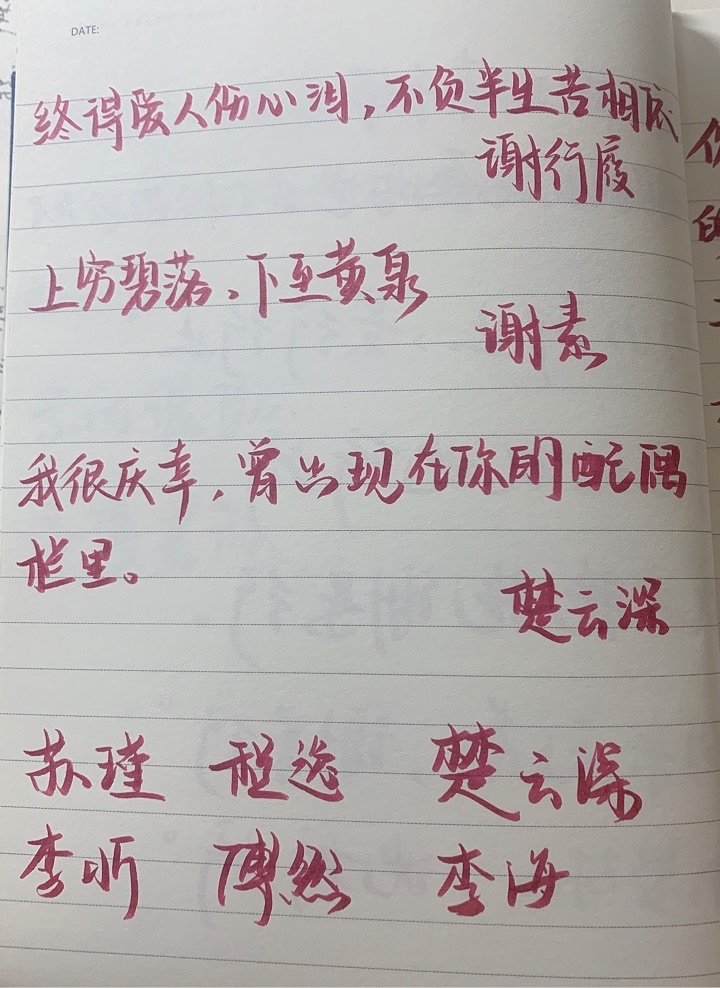 DATE:
终得爱人伤心泪，不负半生苦相依
谢行履
上穷碧落、下至黄泉
谢素
我很庆幸，曾出现在你的配偶
栏里。
楚云深
苏瑾 程逸 楚云深
李昕 傅然 李海